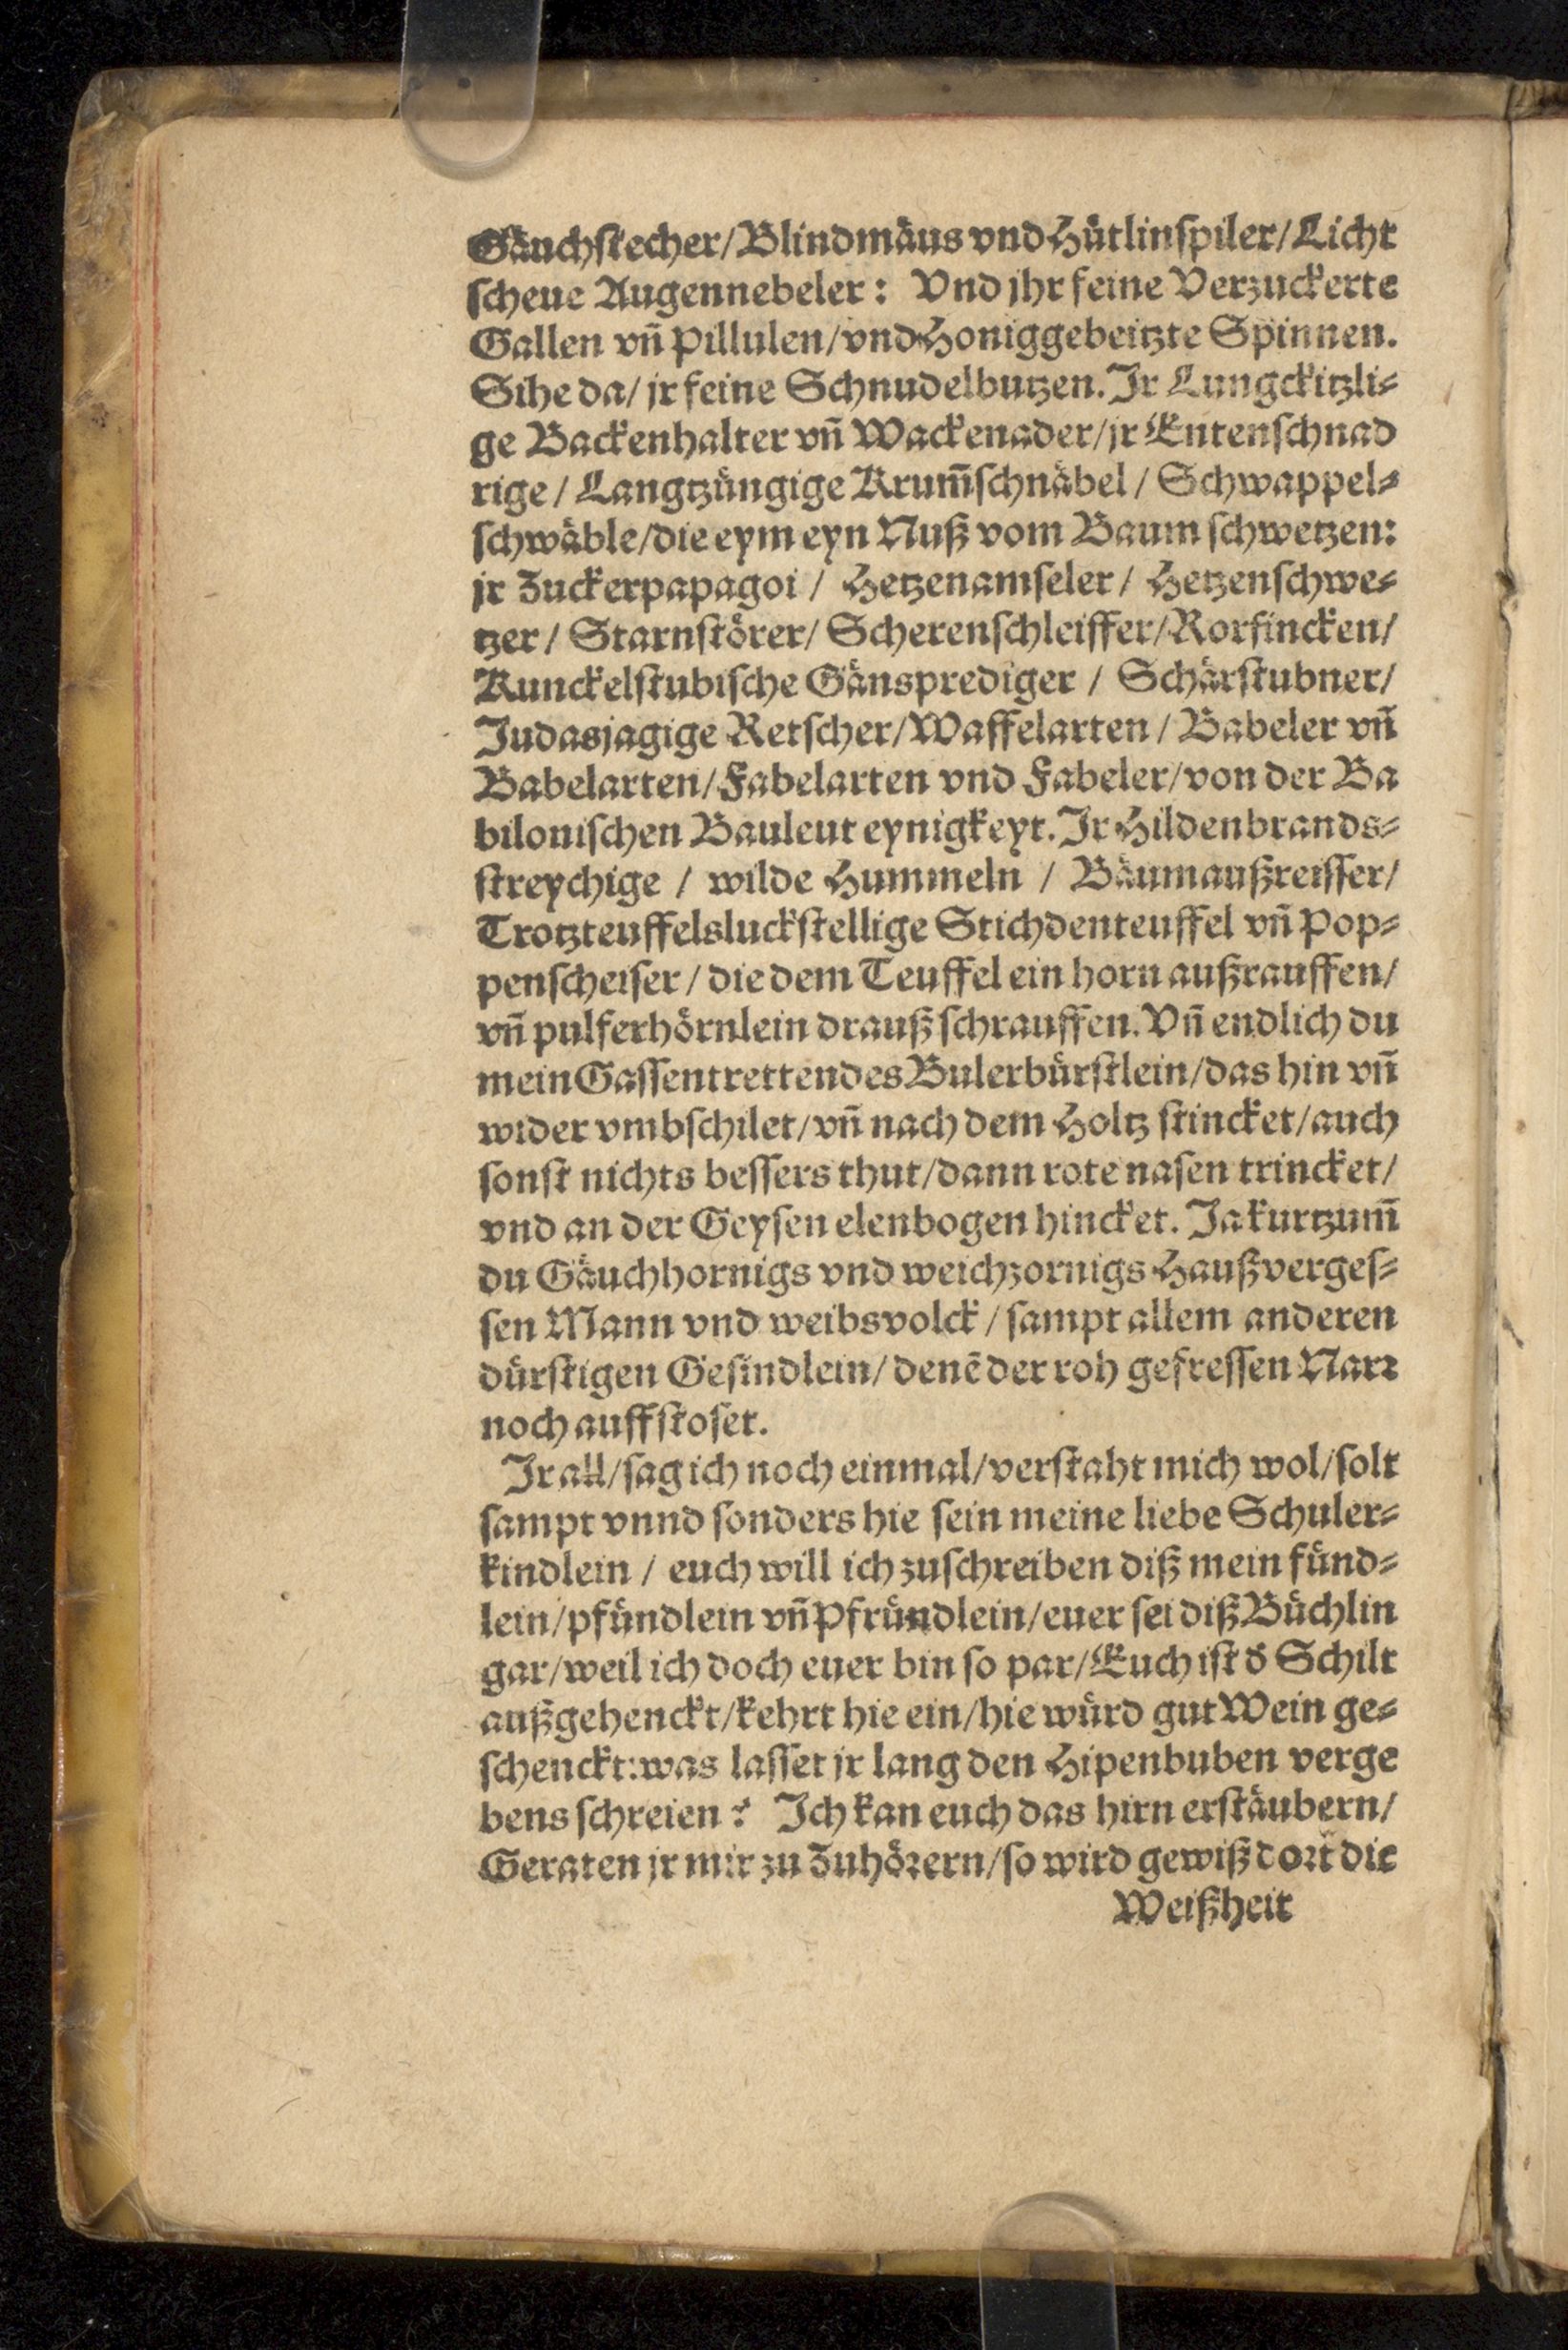 Gäuchstecher/Blindmäus vnd Hütlinspiler/Licht
scheue Augennebeler: Vnd jhr feine Verzuckerte
Gallen vñ Pillulen/vnd Honiggebeitzte Spinnen.
Sihe da/ jr feine Schnudelbutzen. Jr Lungckitzli⸗
ge Backenhalter vñ Wackenader/jr Entenschnad
rige/ Langtzüngige Krum̃schnäbel/ Schwappel⸗
schwäble/die eym eyn Nuß vom Baum schwetzen:
jr Zuckerpapagoi / Hetzenamseler/ Hetzenschwe⸗
tzer/ Starnstörer/ Scherenschleiffer/Rorfincken/
Kunckelstubische Gänsprediger / Schärstubner/
Judasjagige Retscher/Waffelarten/ Babeler vñ
Babelarten/Fabelarten vnd Fabeler/von der Ba
bilonischen Bauleut eynigkeyt. Jr Hildenbrands⸗
streychige / wilde Hummeln / Bäumaußreisser/
Trotzteuffelsluckstellige Stichdenteuffel vñ Pop⸗
penscheiser/ die dem Teuffel ein horn außrauffen/
vñ pulferhörnlein drauß schrauffen. Vñ endlich du
mein Gassentrettendes Bulerbürstlein/das hin vñ
wider vmbschilet/vñ nach dem Holtz stincket/auch
sonst nichts bessers thut/dann rote nasen trincket/
vnd an der Geysen elenbogen hincket. Ja kurtzum̃
du Gäuchhornigs vnd weichzornigs Haußverges⸗
sen Mann vnd weibsvolck/ sampt allem anderen
dürstigen Gesindlein/ denẽ der roh gefressen Narr
noch auffstoset.
Jr all/sag ich noch einmal/verstaht mich wol/solt
sampt vnnd sonders hie sein meine liebe Schuler⸗
kindlein / euch will ich zuschreiben diß mein fünd⸗
lein/pfündlein vñ Pfründlein/euer sei diß Büchlin
gar/weil ich doch euer bin so par/Euch ist d̕ Schilt
außgehenckt/kehrt hie ein/hie würd gut Wein ge⸗
schenckt:was lasset jr lang den Hipenbuben verge
bens schreien? Jch kan euch das hirn erstäubern/
Geraten jr mir zu Zuhörern/so wird gewiß dort die
Weißheit